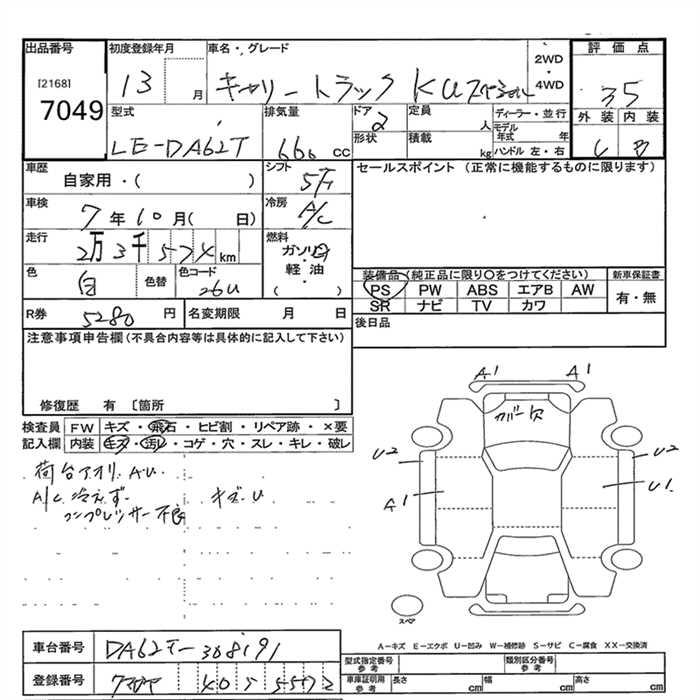 出品番号 初度登録年月 車名・グレード 評価点
[2168] 2WD
7049 13 月 キャリートラック KU 4WD 35
型式 排気量 ドア 定員 ディーラー・並行 外装 内装
LE-DA62T 660 cc 2 人 モデル年式 年 C B
形状 積載 kg ハンドル 左・右
車歴 シフト セールスポイント (正常に機能するものに限ります)
自家用・( ) 5F
車検 冷房
7年10月( 日) A/C
走行 燃料
2万3千574km ガソリン
軽・油
色 色替 色コード ( )
白 26U
装備品(純正品に限り〇をつけてください) 新車保証書
PS PW ABS エアB AW 有・無
SR ナビ TV カワ
R券 5280 円 名変期限 月 日 後日品
注意事項申告欄(不具合内容等は具体的に記入して下さい)
修復歴 有 〔箇所 〕
検査員 FW キズ・飛石・ヒビ割・リペア跡・×要
記入欄 内装 キズ・汚レ・コゲ・穴・スレ・キレ・破レ
荷台アオリ AU
A/C 冷えず キズU
コンプレッサー不良
A1 A1
カバー穴
U2 U2
A1 U1
スペア
A-キズ E-エクボ U-凹み W-補修跡 S-サビ C-腐食 XX-交換済
車台番号 DA62T-308191
型式指定番号 参考 類別区分番号 参考
登録番号 405 5572
車庫証明用 参考 長さ cm 幅 cm 高さ cm